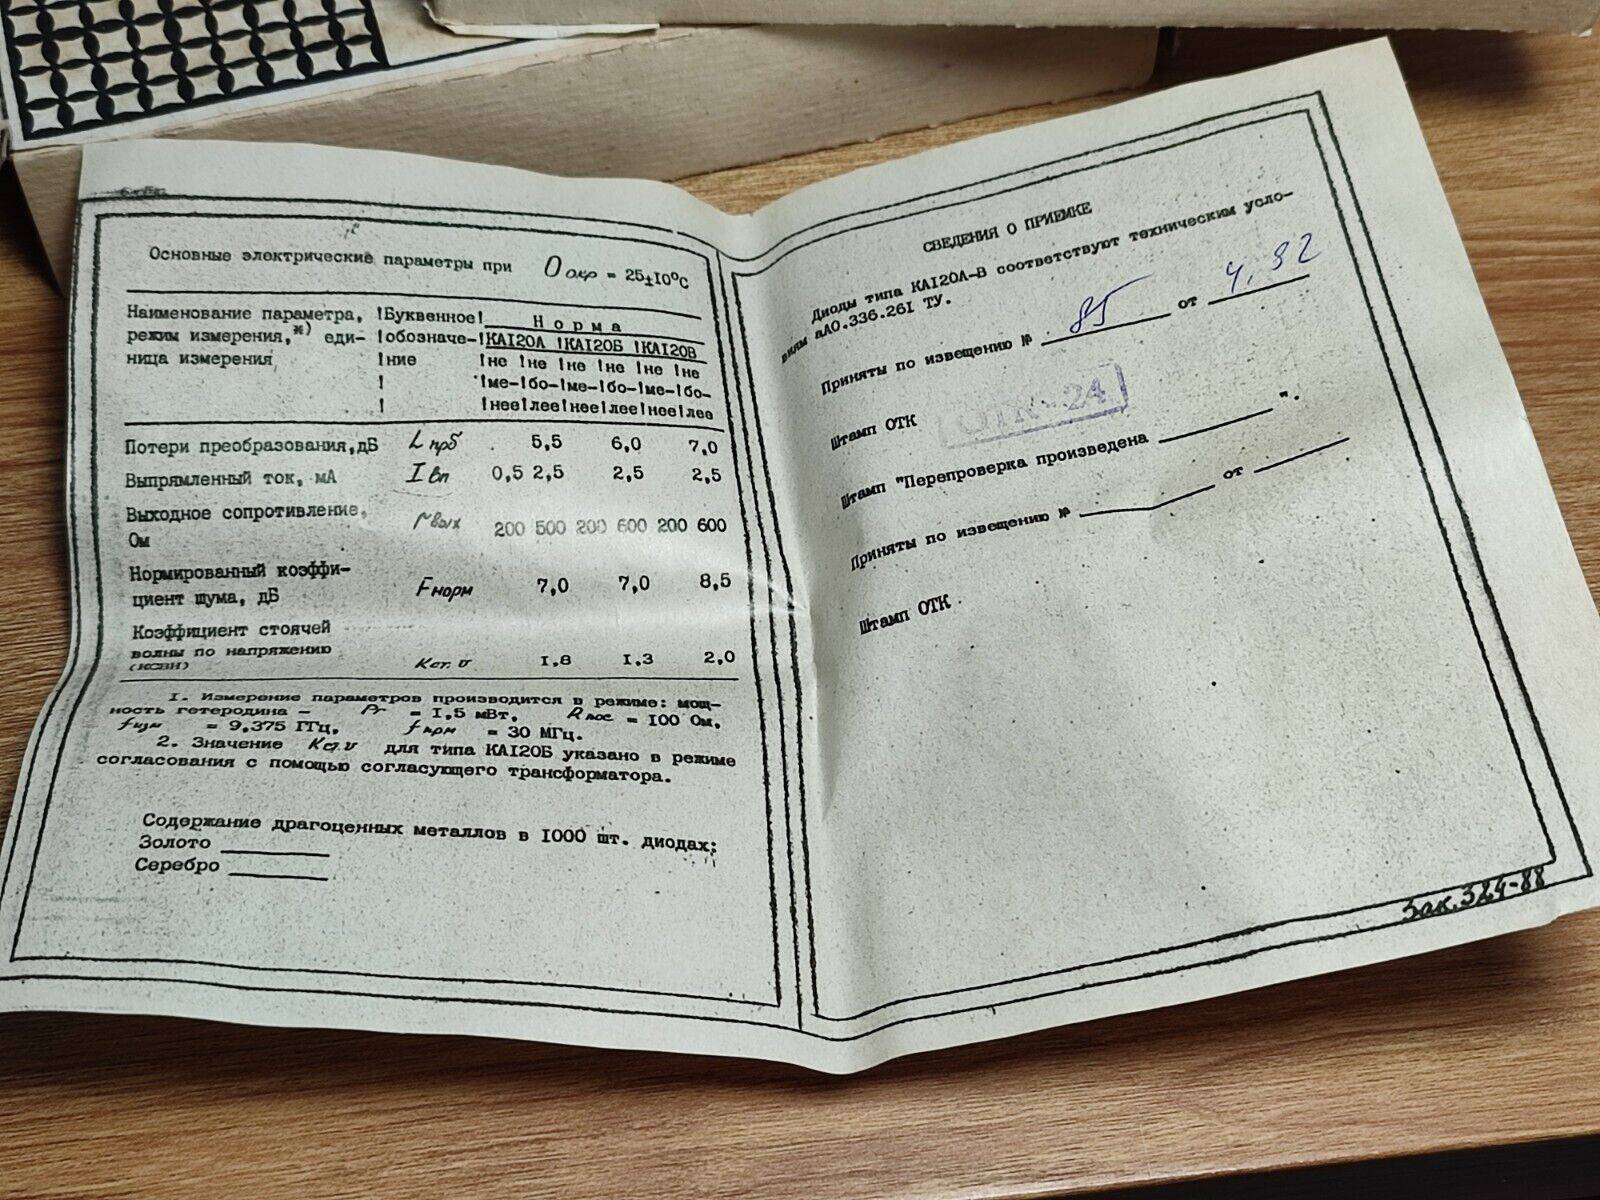 Основные электрические параметры при Оокр = 25±I0°С
Наименование параметра, !Буквенное! Норма
режим измерения,ж) еди- !обозначе-!КАI20А !КАI20Б !КАI20В
ница измерения !ние !не !не !не !не !не !не
! !ме-!бо-!ме-!бо-!ме-!бо-
! !нее!лее!нее!лее!нее!лее
Потери преобразования,дБ Lпрб 5,5 6,0 7,0
Выпрямленный ток, мА Iвп 0,5 2,5 2,5 2,5
Выходное сопротивление, rвых 200 500 200 600 200 600
Ом
Нормированный коэффи-
циент шума, дБ Fнорм 7,0 7,0 8,5
Коэффициент стоячей
волны по напряжению
(КСВН) Кст.U I.8 I.3 2,0
I. Измерение параметров производится в режиме: мощ-
ность гетеродина — Рг = I,5 мВт, Rпос = I00 Ом,
fизм = 9,375 ГГц, fпрм = 30 МГц.
2. Значение Кст.U для типа КАI20Б указано в режиме
согласования с помощью согласующего трансформатора.
Содержание драгоценных металлов в I000 шт. диодах:
Золото
Серебро
СВЕДЕНИЯ О ПРИЕМКЕ
Диоды типа КАI20А-В соответствуют техническим усло-
виям аА0.336.26I ТУ.
Приняты по извещению № 85 от 4.92
Штамп ОТК ОТК-24
Штамп "Перепроверка произведена ".
Приняты по извещению № от
Штамп ОТК
Зак.324-88